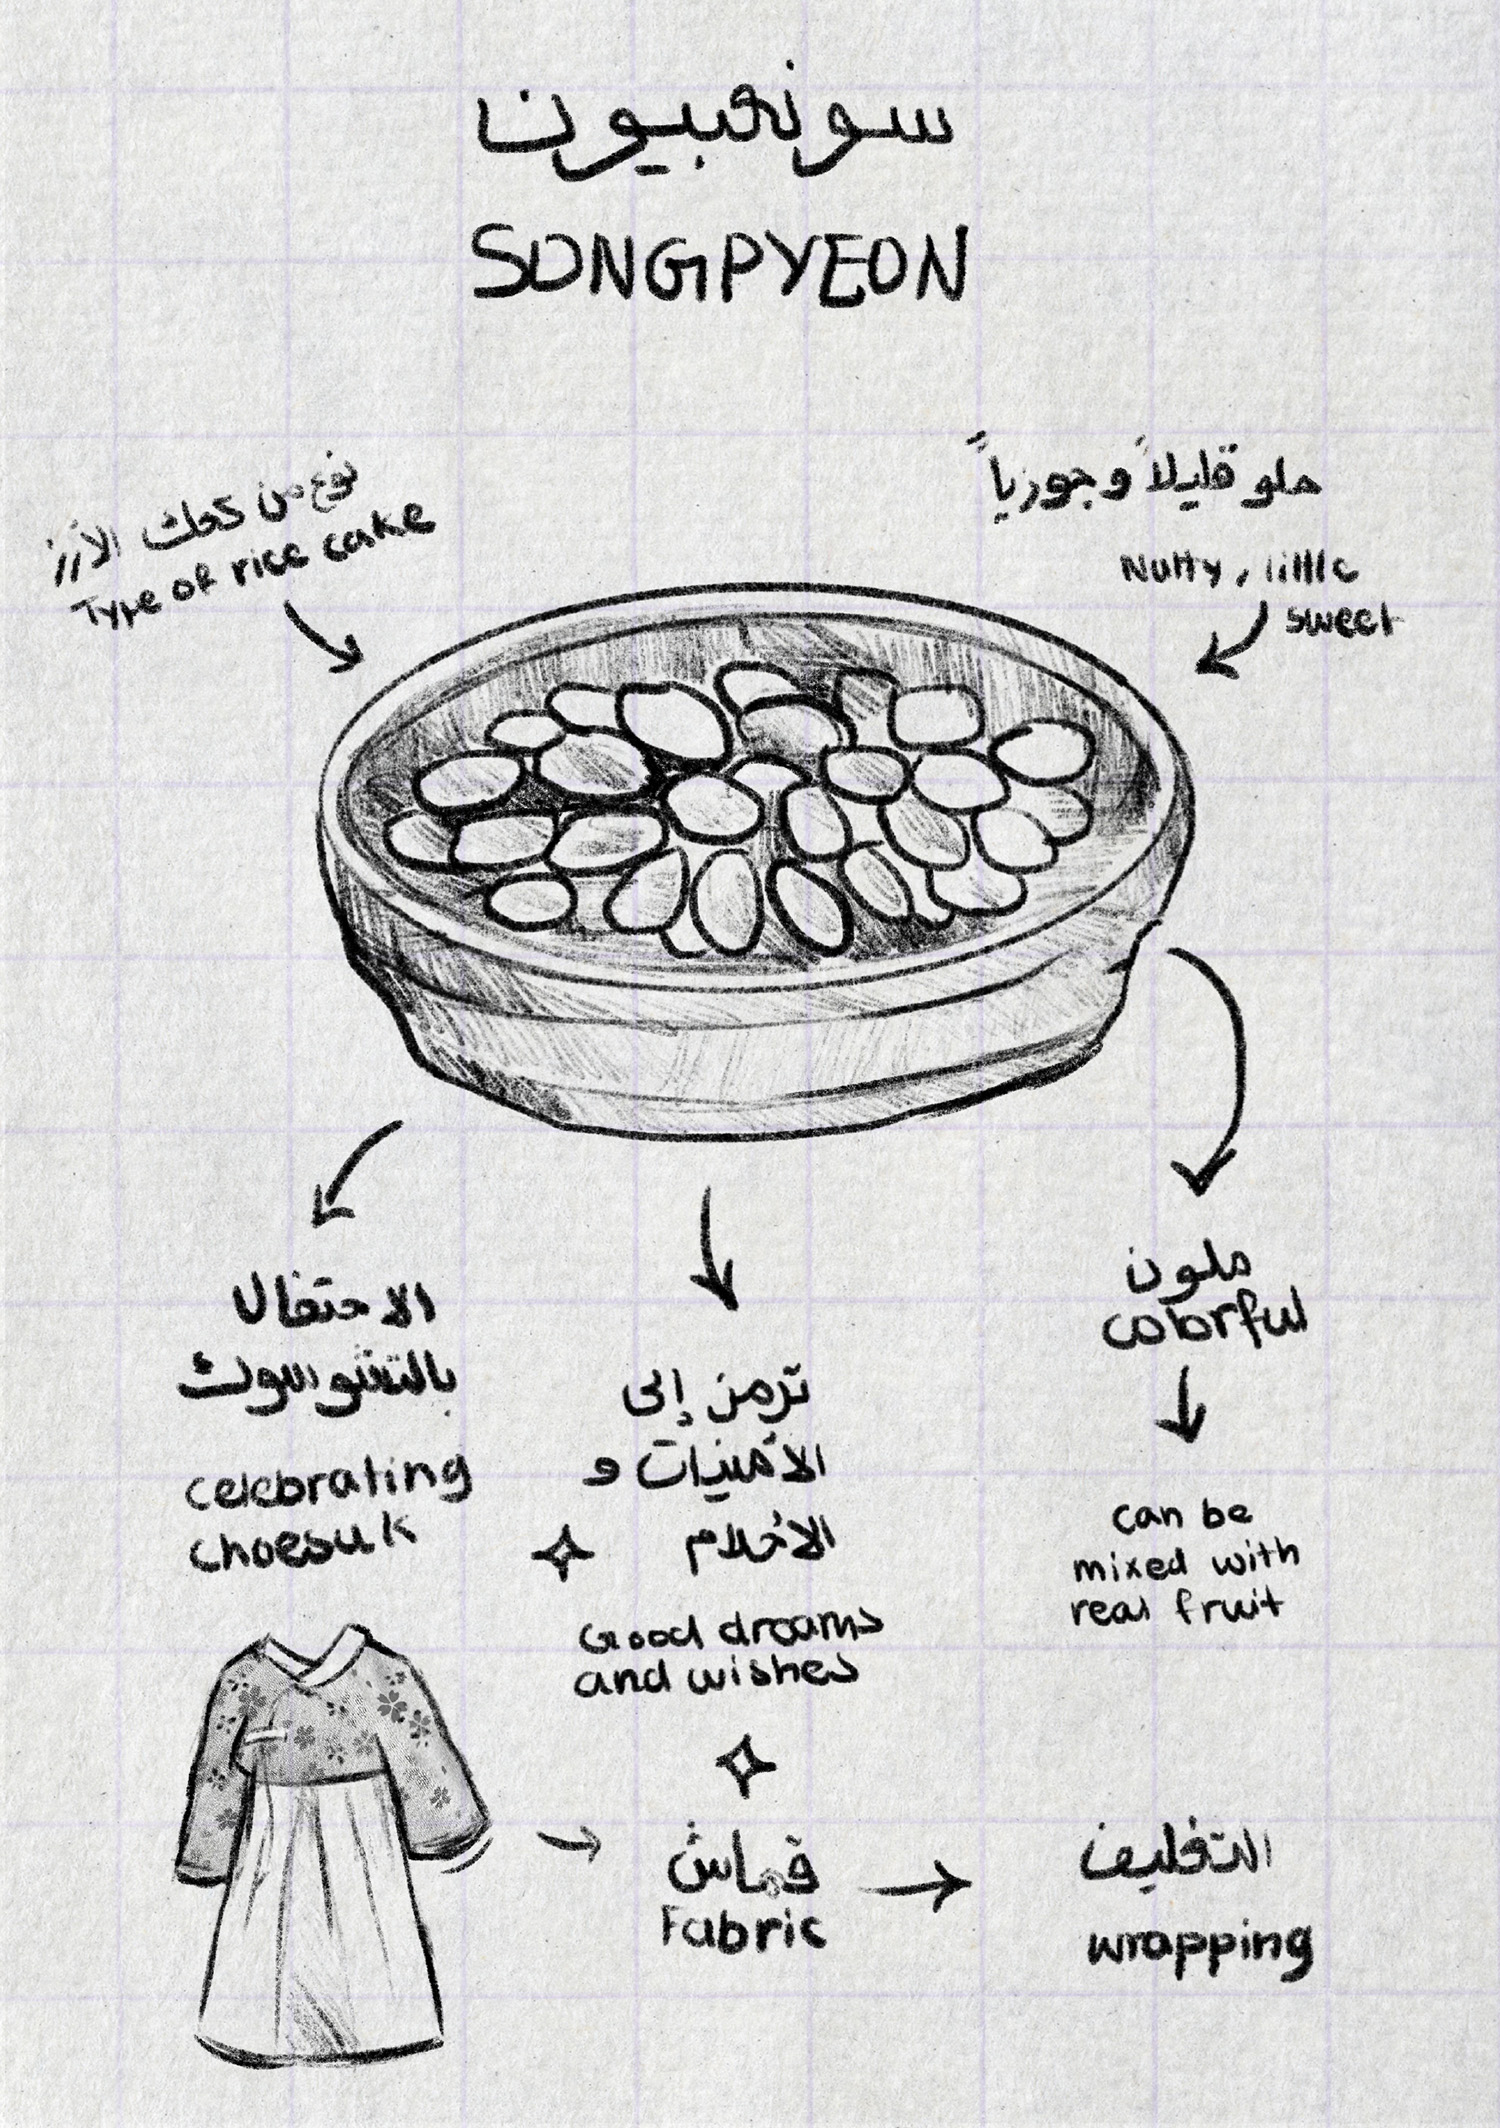 سونغبيون
SONGPYEON
نوع من كعك الأرز
Type of rice cake
حلو قليلاً وجوزياً
Nutty, little
sweet
الاحتفال
بالتشوسوك
celebrating
choesuk
ترمز إلى
الأمنيات و
الأحلام
Good dreams
and wishes
ملون
colorful
can be
mixed with
real fruit
قماش
Fabric
التغليف
wrapping